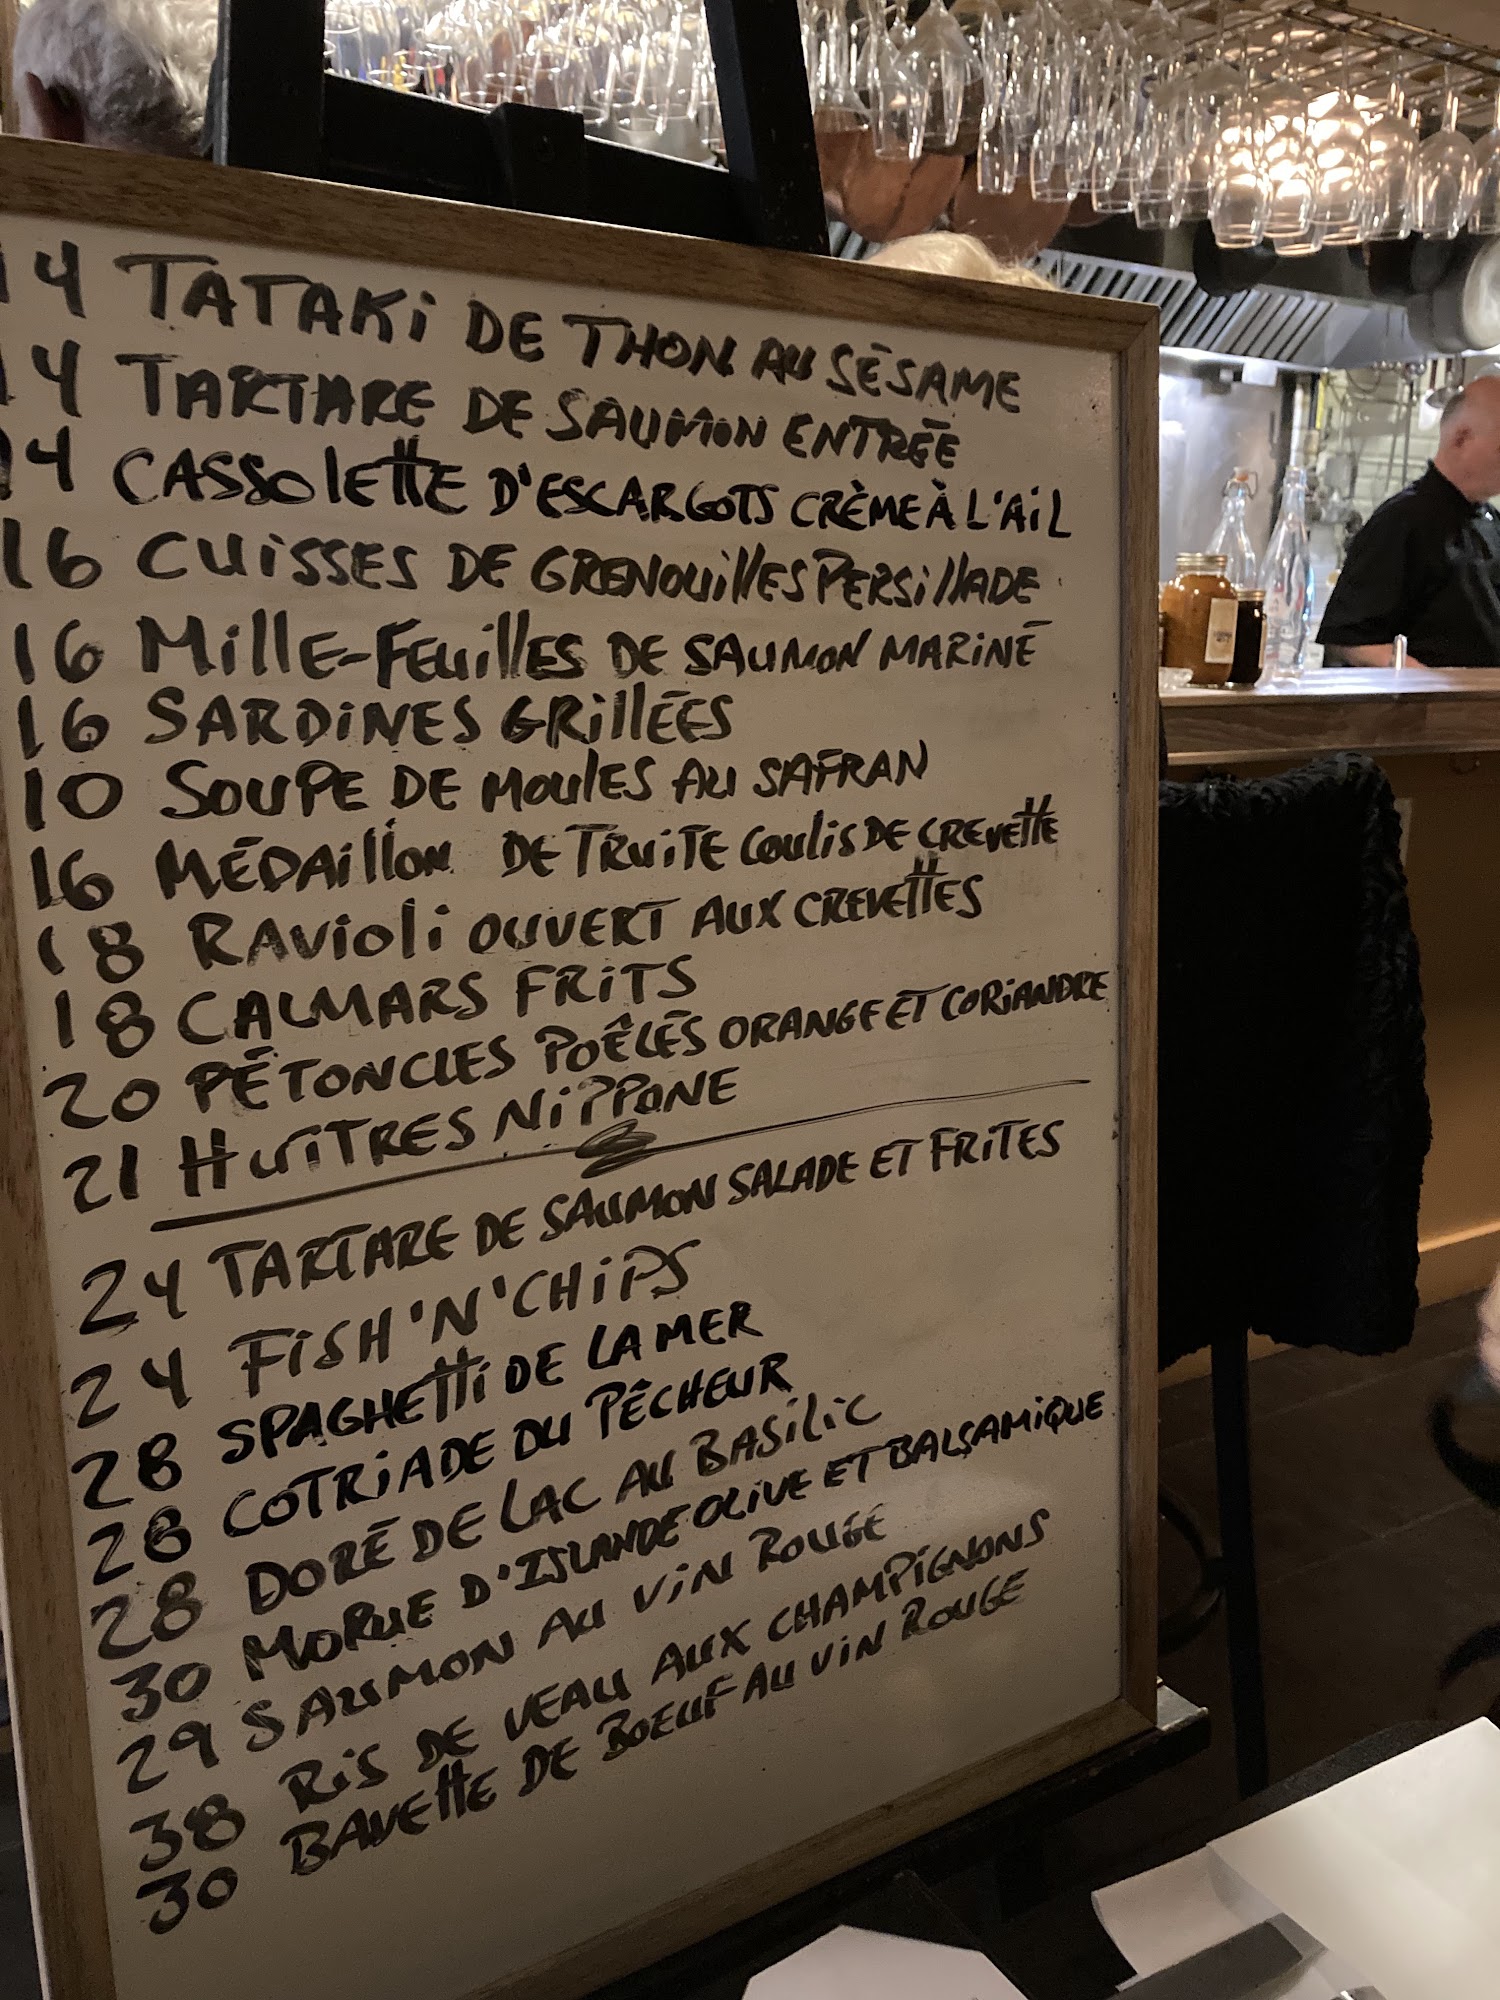 14 TATAKi DE THON AU SÉSAME
14 TARTARE DE SAUMON ENTRÉE
14 CASSOLETTE D'ESCARGOTS CRÈME À L'AiL
16 CUiSSES DE GRENOUiLLES PERSiLLADE
16 MiLLE-FEUiLLES DE SAUMON MARiNÉ
16 SARDiNES GRiLLÉES
10 SOUPE DE MOULES AU SAFRAN
16 MÉDAiLLON DE TRUiTE COULiS DE CREVETTE
18 RAViOLi OUVERT AUX CREVETTES
18 CALMARS FRiTS
20 PÉTONCLES POÊLÉS ORANGE ET CORiANDRE
21 HUîTRES NiPPONE
24 TARTARE DE SAUMON SALADE ET FRiTES
24 FiSH 'N' CHiPS
28 SPAGHETTi DE LA MER
28 COTRiADE DU PÊCHEUR
28 DORÉ DE LAC AU BASiLiC
30 MORUE D'ISLANDE OLiVE ET BALSAMiQUE
29 SAUMON AU ViN ROUGE
38 RiS DE VEAU AUX CHAMPiGNONS
30 BAVETTE DE BOEUF AU ViN ROUGE